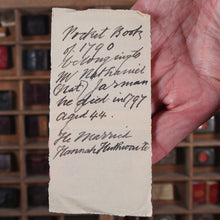 Pocket Book
of 1790
belonging to
Mr Nathaniel
(Nat) Jarman
he died in 1797
aged 44.
He Married
Hannah